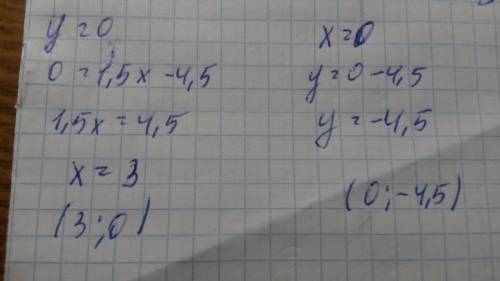 y = 0
0 = 1,5x - 4,5
1,5x = 4,5
x = 3
(3 ; 0)
x = 0
y = 0 - 4,5
y = -4,5
(0 ; -4,5)